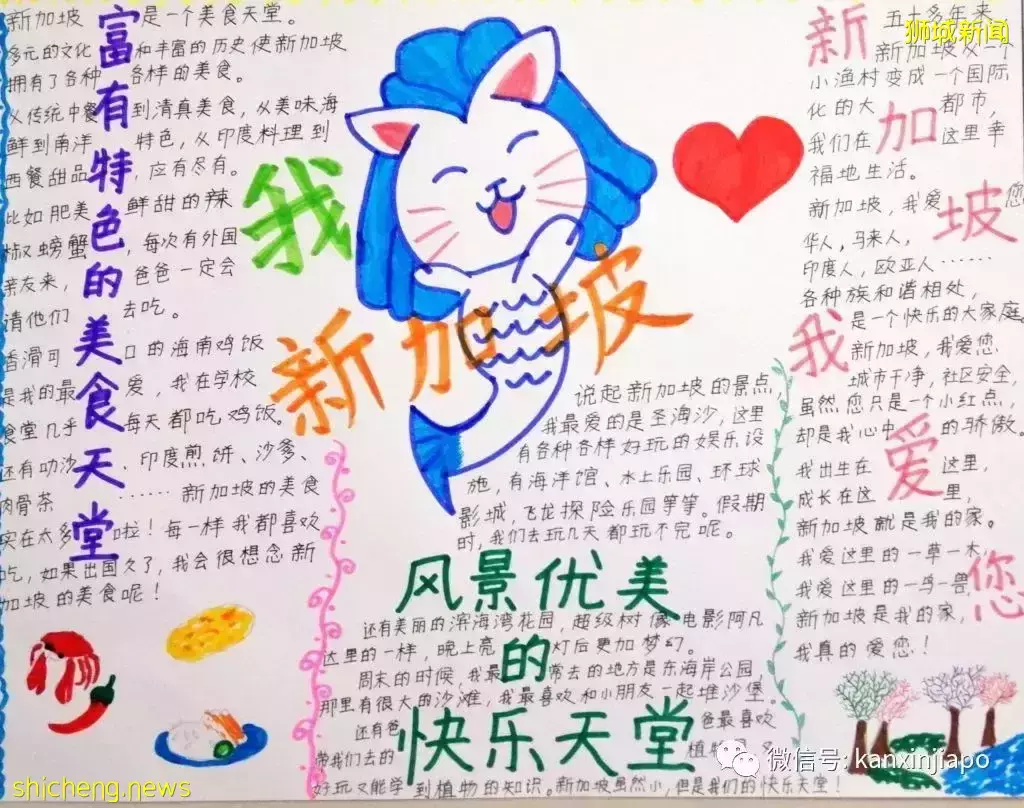 富有特色的美食天堂
新加坡是一个美食天堂。
多元的文化和丰富的历史使新加坡
拥有了各种各样的美食。
从传统中餐到清真美食，从美味海
鲜到南洋特色，从印度料理到
西餐甜品，应有尽有。
比如肥美鲜甜的辣
椒螃蟹，每次有外国
亲友来，爸爸一定会
请他们去吃。
香滑可口的海南鸡饭
是我的最爱，我在学校
食堂几乎每天都吃鸡饭。
还有叻沙、印度煎饼、沙爹、
肉骨茶……新加坡的美食
实在太多啦！每一样我都喜欢
吃，如果出国久了，我会很想念新
加坡的美食呢！
我
新加坡
说起新加坡的景点，
我最爱的是圣淘沙，这里
有各种各样好玩的娱乐设
施，有海洋馆、水上乐园、环球
影城，飞龙探险乐园等等。假期
时，我们去玩几天都玩不完呢。
风景优美
的
快乐天堂
还有美丽的滨海湾花园，超级树像电影阿凡
达里的一样，晚上亮灯后更加梦幻。
周末的时候，我最常去的地方是东海岸公园，
那里有很大的沙滩，我最喜欢和小朋友一起堆沙堡。
还有爸爸最喜欢
带我们去的植物
好玩又能学到植物的知识。新加坡虽然小，但是我们的快乐天堂！
新加坡我爱您
五十多年来
新加坡从一个
小渔村变成一个国际
化的大都市，
我们在这里幸
福地生活。
新加坡，我爱您
华人，马来人，
印度人，欧亚人……
各种族和谐相处，
是一个快乐的大家庭。
新加坡，我爱您
城市干净，社区安全，
虽然您只是一个小红点，
却是我心中的骄傲。
我出生在这里，
成长在这里，
新加坡就是我的家。
我爱这里的一草一木，
我爱这里的一鸟一兽，
新加坡是我的家，
我真的爱您！
狮城新闻
微信号: kanxinjiapo
shicheng.news